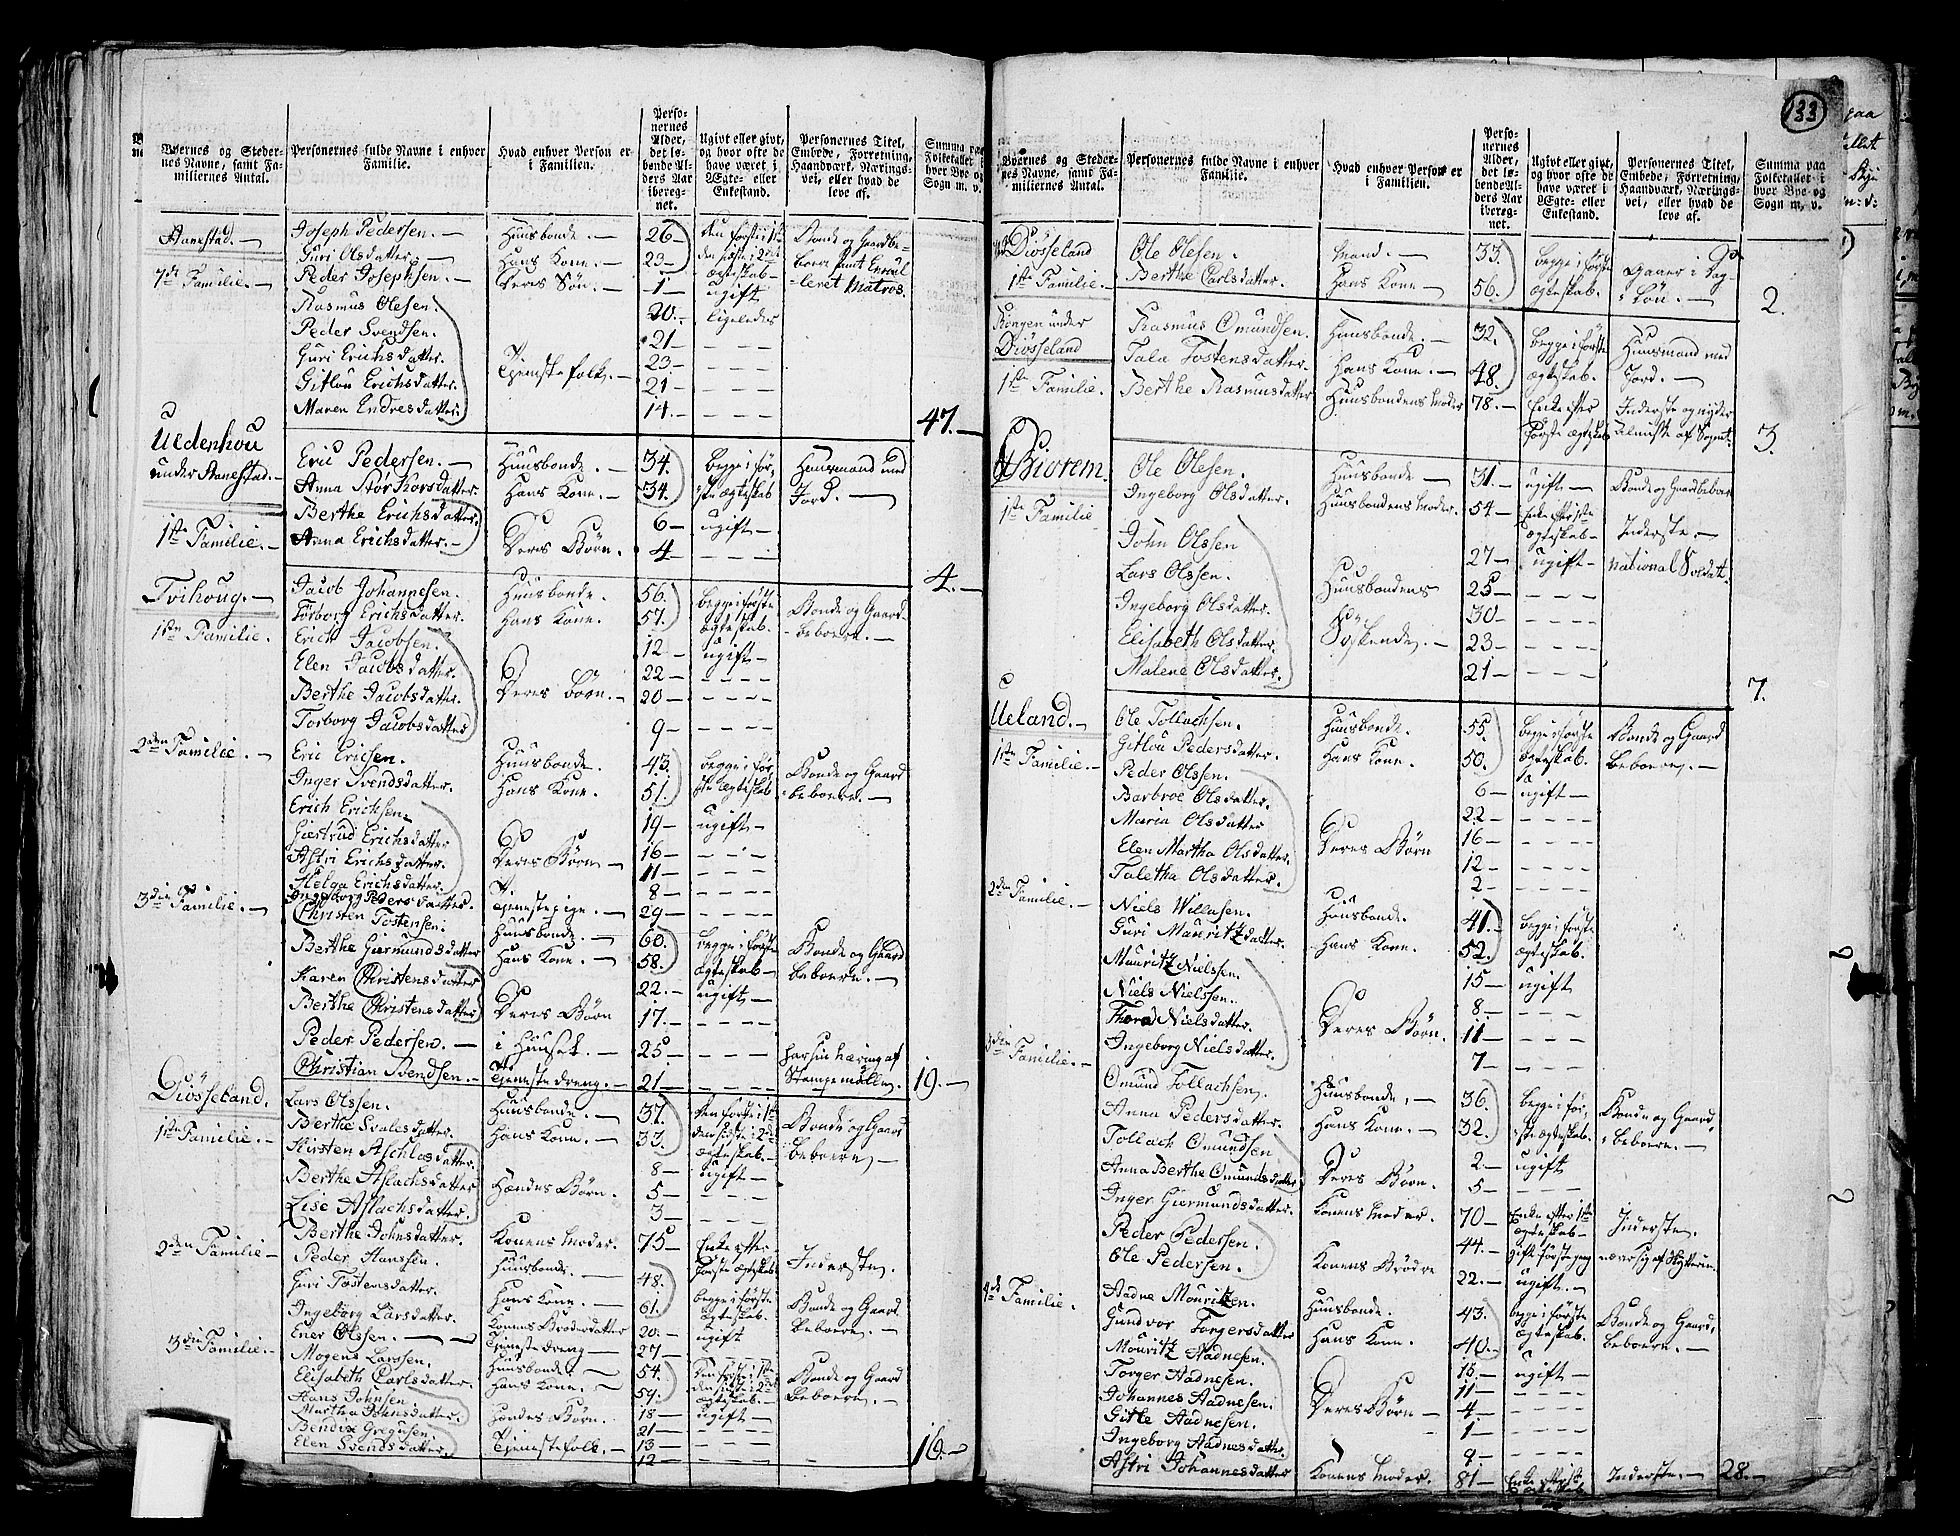 133
Byernes og Steder-
nes Navne, samt Fa-
miliernes Antal.
Personernes fulde Navne i enhver
Familie.
Hvad enhver Person er
i Familien.
Perso-
nernes
Alder,
det lø-
bende Al-
ders Aar
iberegnet.
Ugivt eller givt,
og hvor ofte de
have været i
Ægte- eller
Enkestand.
Personernes Titel,
Embede, Forretning,
Haandværk, Nærings-
vei, eller hvad de
leve af.
Summa paa
Folketallet i
hver Bye og
Sogn m. v.
Aanestad.
7de Familie.
Joseph Pedersen. Huusbonde. 26 Den første i 1te Bonde og Gaardbe-
Guri Olsdatter Hans Kone. 23
Peder Josephsen. Deres Søn. 1 ugift
Rasmus Olesen. 20 ligeledes
Peder Svendsen. 21
Guri Erichsdatter. Tjenestefolk. 23
Gitlou Erichsdatter. 21
Maren Endresdatter. 14. 47.
Uldenhou
under Aanestad.
1ste Familie.
Eric Pedersen. Huusbonde. 34. begge i før- Huusmand med
Anna StorKorsdatter. Hans Kone. 34. ste ægteskab Jord.
Berthe Erichsdatter. Deres Børn. 6 ugift
Anna Erichsdatter. 4 4.
Tvihoug.
1ste Familie.
Jacob Johannesen. Huusbonde. 56. begge i første Bonde og Gaard
Torborg Erichsdatter. Hans Kone. 57. ægteskab. beboere.
Erich Jacobsen. 12 ugift
Elen Jacobsdatter. Deres Børn. 22
Berthe Jacobsdatter. 20
Torborg Jacobsdatter 9
2den Familie.
Eric Ericsen. Huusbonde. 43. begge i før- Bonde og Gaard
Inger Svendsdatter. Hans Kone. 51. ste ægteskab beboere.
Erich Erichsen. 19 ugift
Giertrud Erichsdatter Deres Børn 16
Astri Erichsdatter. 11
Helga Erichsdatter. 8
Ingeborg Pedersdatter. Tjenestepige. 29
3die Familie.
Christen Tostensen. Huusbonde. 60. begge i første Bonde og Gaard
Berthe Giermundsdatter Hans Kone. 58. ægteskab beboere.
Karen Christensdatter 22. ugift
Berthe Christensdatter Deres Børn 17.
Peder Pedersen. i Huuset. 25
Christian Svendsen. Tjenestedreng. 21 19.
Diösseland.
1ste Familie.
Lars Olssen. Huusbonde. 37. Den første i 1te Bonde og Gaard
Berthe Svalesdatter. Hans Kone. 33. den sidste i 2det beboere
Kirsten Aschlasdatter. 8 ægteskab.
Berthe Aslachsdatter Hendes Børn. 5 ugift
Lise Aslachsdatter. 3
Berthe Johnsdatter. Konens Moder. 75 Enke efter Inderste.
første ægteskab
2den Familie
Peder Hanssen. Huusbonde. 48. begge i første Bonde og Gaard
Guri Tostensdatter. Hans Kone. 61. ægteskab beboere.
Ingeborg Larsdatter. Konens Broderdatter 20. ugift
Ener Olssen. Tjenestedreng 27
3die Familie.
Mogens Larssen. Huusbonde 54. Bonde og Gaard
Elisabeth Carlsdatter. Hans Kone. 59. ægteskab. beboere.
Hans Johnsen Hendes Børn. 18 ugift
Martha Johnsdatter. 21
Bendix Gregusen. Tjenestefolk. 13
Elen Svendsdatter. 12 16.
Byernes og Steder-
nes Navne, samt Fa-
miliernes Antal.
Personernes fulde Navne i enhver
Familie.
Hvad enhver Person er
i Familien.
Perso-
nernes
Alder,
det lø-
bende Al-
ders Aar
iberegnet.
Ugivt eller givt,
og hvor ofte de
have været i
Ægte- eller
Enkestand.
Personernes Titel,
Embede, Forretning,
Haandværk, Nærings-
vei, eller hvad de
leve af.
Summa paa
Folketallet i
hver Bye og
Sogn m. v.
Diösseland
1ste Familie.
Ole Olesen. Mand. 33. begge i første Gaaer i Dag-
Berthe Carlsdatter. Hans Kone 56. ægteskab. Løn. 2.
under
Diösseland
1ste Familie
Rasmus Omundsen. Huusbonde. 32. begge i første Huusmand med
Tala Tostensdatter. Hans Kone. 48. ægteskab. Jord.
Berthe Rasmusdatter Huusbondens Moder 78. Enke efter Inderste og nyder
første ægteskab Almisse af Sognet. 3.
Biorem.
1ste Familie
Ole Olesen. Huusbonde 31. ugift Bonde og Gaardbeboer
Ingeborg Olsdatter. Huusbondens Moder. 54 Inderste.
John Olssen 27 ugift National Soldat.
Lars Olssen. Huusbondens 25
Ingeborg Olsdatter. Søskende. 30
Elisabeth Olsdatter. 23
Malene Olsdatter. 21 7.
Ueland.
1ste Familie.
Ole Tollachsen. Huusbonde. 55. begge i første Bonde og Gaard
Gitlou Pedersdatter. Hans Kone. 50. ægteskab. beboere.
Peder Olssen. 6 ugift
Barbroe Olsdatter. 22
Maria Olsdatter Deres Børn 16
Elen Martha Olsdatter. 12
Taletha Olsdatter. 2
2den Familie.
Niels Willasen. Huusbonde. 41. begge i første
Guri Mauritzdatter. Hans Kone. 52. ægteskab.
Mauritz Nielssen. 15 ugift
Niels Nielssen. Deres Børn. 8
Thora Nielsdatter. 11
Ingeborg Nielsdatter. 7
3die Familie.
Omund Tollachsen. Huusbonde. 36. begge i før- Bonde og Gaard
Anna Pedersdatter. Hans Kone. 32. ste ægteskab. beboere.
Tollach Omundsen Deres Børn. 2 ugift
Anna Berthe Omundsdatter 5
Inger Giermundsdatter. Konens Moder. 70 Enke efter 1ste Inderste.
ægteskab
Peder Pedersen. Konens Brødre 44. gift første gang
Ole Pedersen. 22. ugift.
4de Familie.
Aadne Mouritzen. Huusbonde. 43. begge i første Bonde og Gaard
Gundvor Torgersdatter Hans Kone. 40. ægteskab. beboere.
Mouritz Aadnesen. 15. ugift
Torger Aadnesen. 11
Johannes Aadnesen. Deres Børn 4
Gitle Aadnesen. 1
Ingeborg Aadnesdatter. 9
Astri Johannesdatter Konens Moder. 81 Inderste. 28.